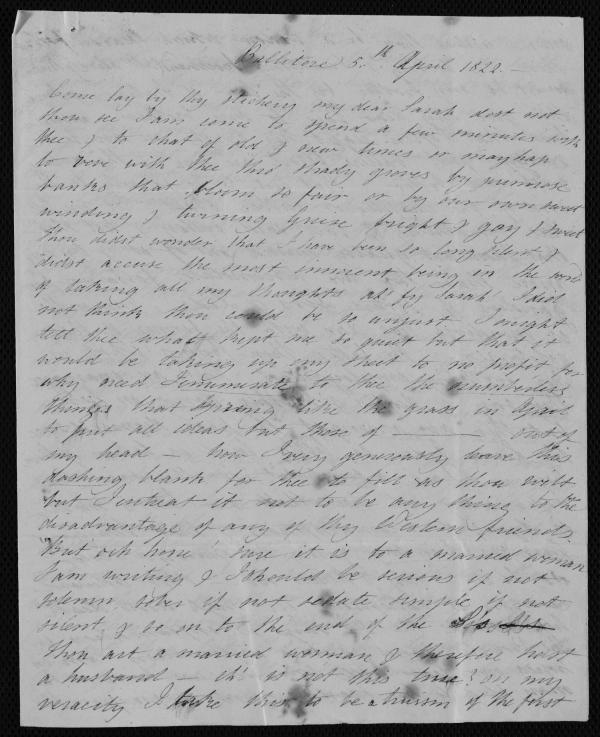 Ballitore 5th April 1822 –
Come lay by thy stitchery my dear Sarah dost not
thou see I am come to spend a few minutes with
thee & to chat of old & new times or mayhap
to rove with thee thro' shady groves by primrose
banks that bloom so fair or by our own sweet
winding & turning Griese bright & gay & sweet
Thou didst wonder that I have been so long silent &
didst accuse the most innocent being in the world
of taking all my thoughts ah! fy Sarah I did
not think thou could be so unjust I might
tell thee what kept me so quiet but that it
would be taking up my sheet to no profit for
why need I enumerate to thee the numberless
things that spring like the grass in April
to put all ideas but those of ——— out of
my head – how I very generously leave this
dashing blank for thee to fill as thou wilt
but I intreat it not to be any thing to the
disadvantage of any of thy Western friends
But och hone sure it is to a married woman
I am writing & I should be serious if not
solemn, sober if not sedate simple if not
silent, & so on to the end of the S's
Thou art a married woman & therefore hast
a husband – eh! is not this true? on my
veracity I take this to be a truism of the first